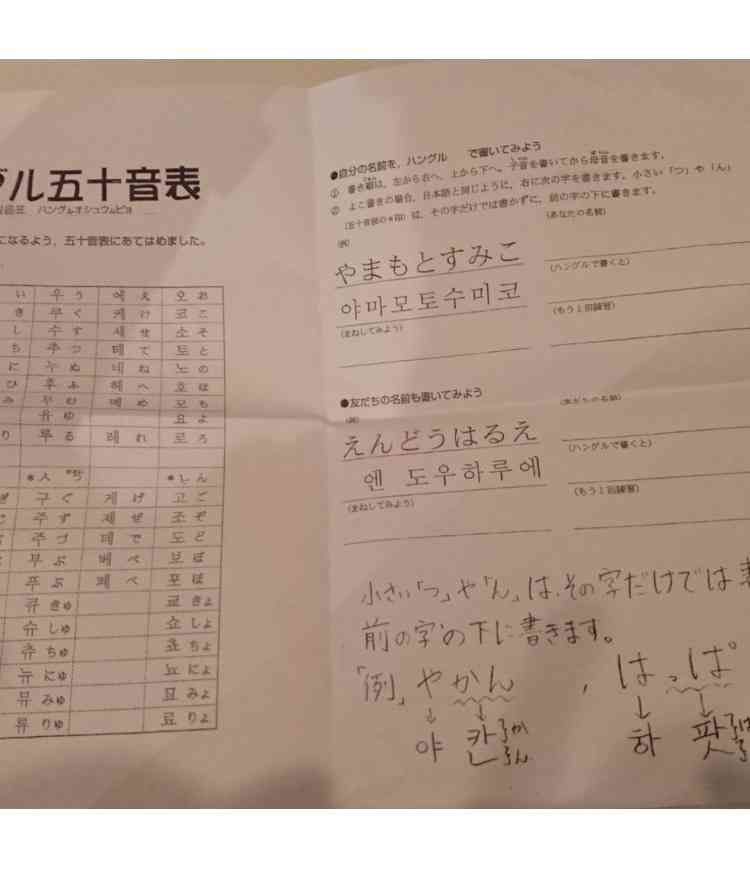 グル五十音表
ハングルオシュウムピョ
になるよう、五十音表にあてはめました。
い 우 う 에 え 오 お
き 쿠 く 케 け 코 こ
し 수 す 세 せ 소 そ
ち 추 つ 테 て 토 と
に 누 ぬ 네 ね 노 の
ひ 후 ふ 헤 へ 호 ほ
み 무 む 메 め 모 も
유 ゆ 요 よ
り 루 る 레 れ 로 ろ
*ㅅ *っ *ㄴ ん
ぎ 구 ぐ 게 げ 고 ご
じ 주 ず 제 ぜ 조 ぞ
주 づ 데 で 도 ど
부 ぶ 베 べ 보 ぼ
푸 ぷ 페 ぺ 포 ぽ
큐 きゅ 쿄 きょ
슈 しゅ 쇼 しょ
츄 ちゅ 쵸 ちょ
뉴 にゅ 뇨 にょ
뮤 みゅ 묘 みょ
류 りゅ 료 りょ
●自分の名前を、ハングル で書いてみよう
① 書き順は、左から右へ、上から下へ。子音を書いてから母音を書きます。
② よこ書きの場合、日本語と同じように、右に次の字を書きます。小さい「つ」や「ん」
(五十音図の*印)は、その字だけでは書かずに、前の字の下に書きます。
(例)
(あなたの名前)
やまもとすみこ
(ハングルで書くと)
야마모토수미코
(まねしてみよう)
(もう1回練習)
●友だちの名前も書いてみよう
(例)
(友だちの名前)
えんどうはるえ
(ハングルで書くと)
엔 도우하루에
(まねしてみよう)
(もう1回練習)
小さい「つ」や「ん」は、その字だけでは書
前の字の下に書きます。
「例」やかん , はっぱ
↓ ↓ ↓ ↓
야 칸 か ん 하 팟